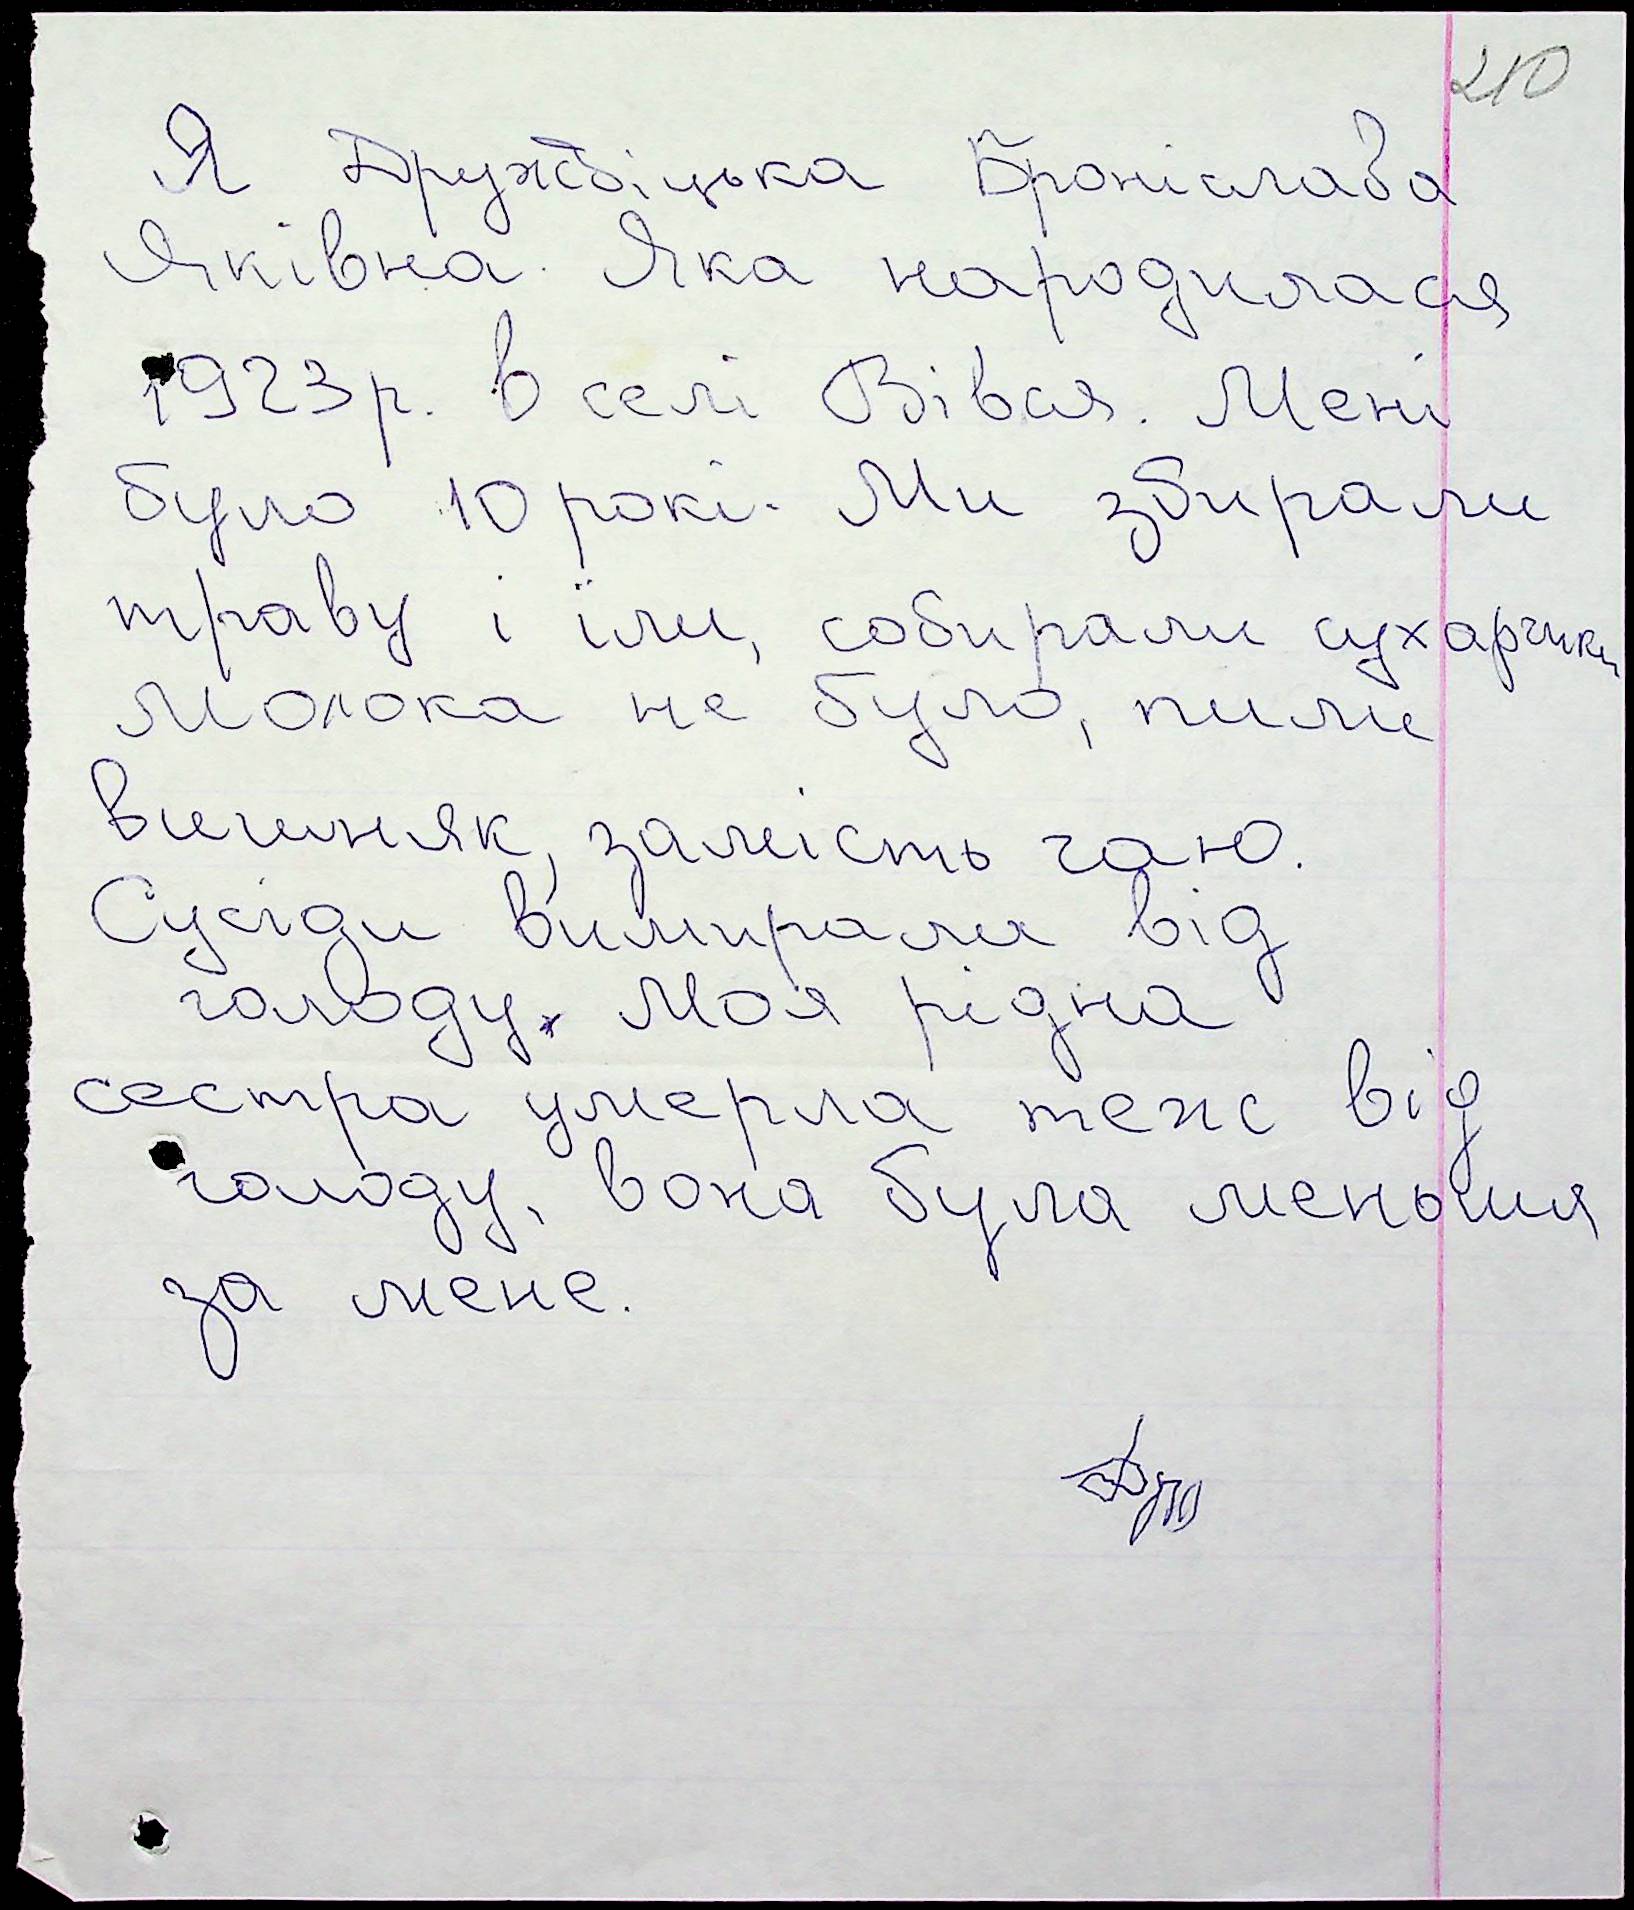 210
Я Дружбіцька Броніслава
Яківна. Яка народилася
1923р. в селі Вівся. Мені
було 10 рокі. Ми збирали
траву і їли, собирали сухарчики
молока не було, пили
вишняк, замість чаю.
Сусіди вимирали від
голоду. Моя рідна
сестра умерла теж від
голоду, вона була меньша
за мене.